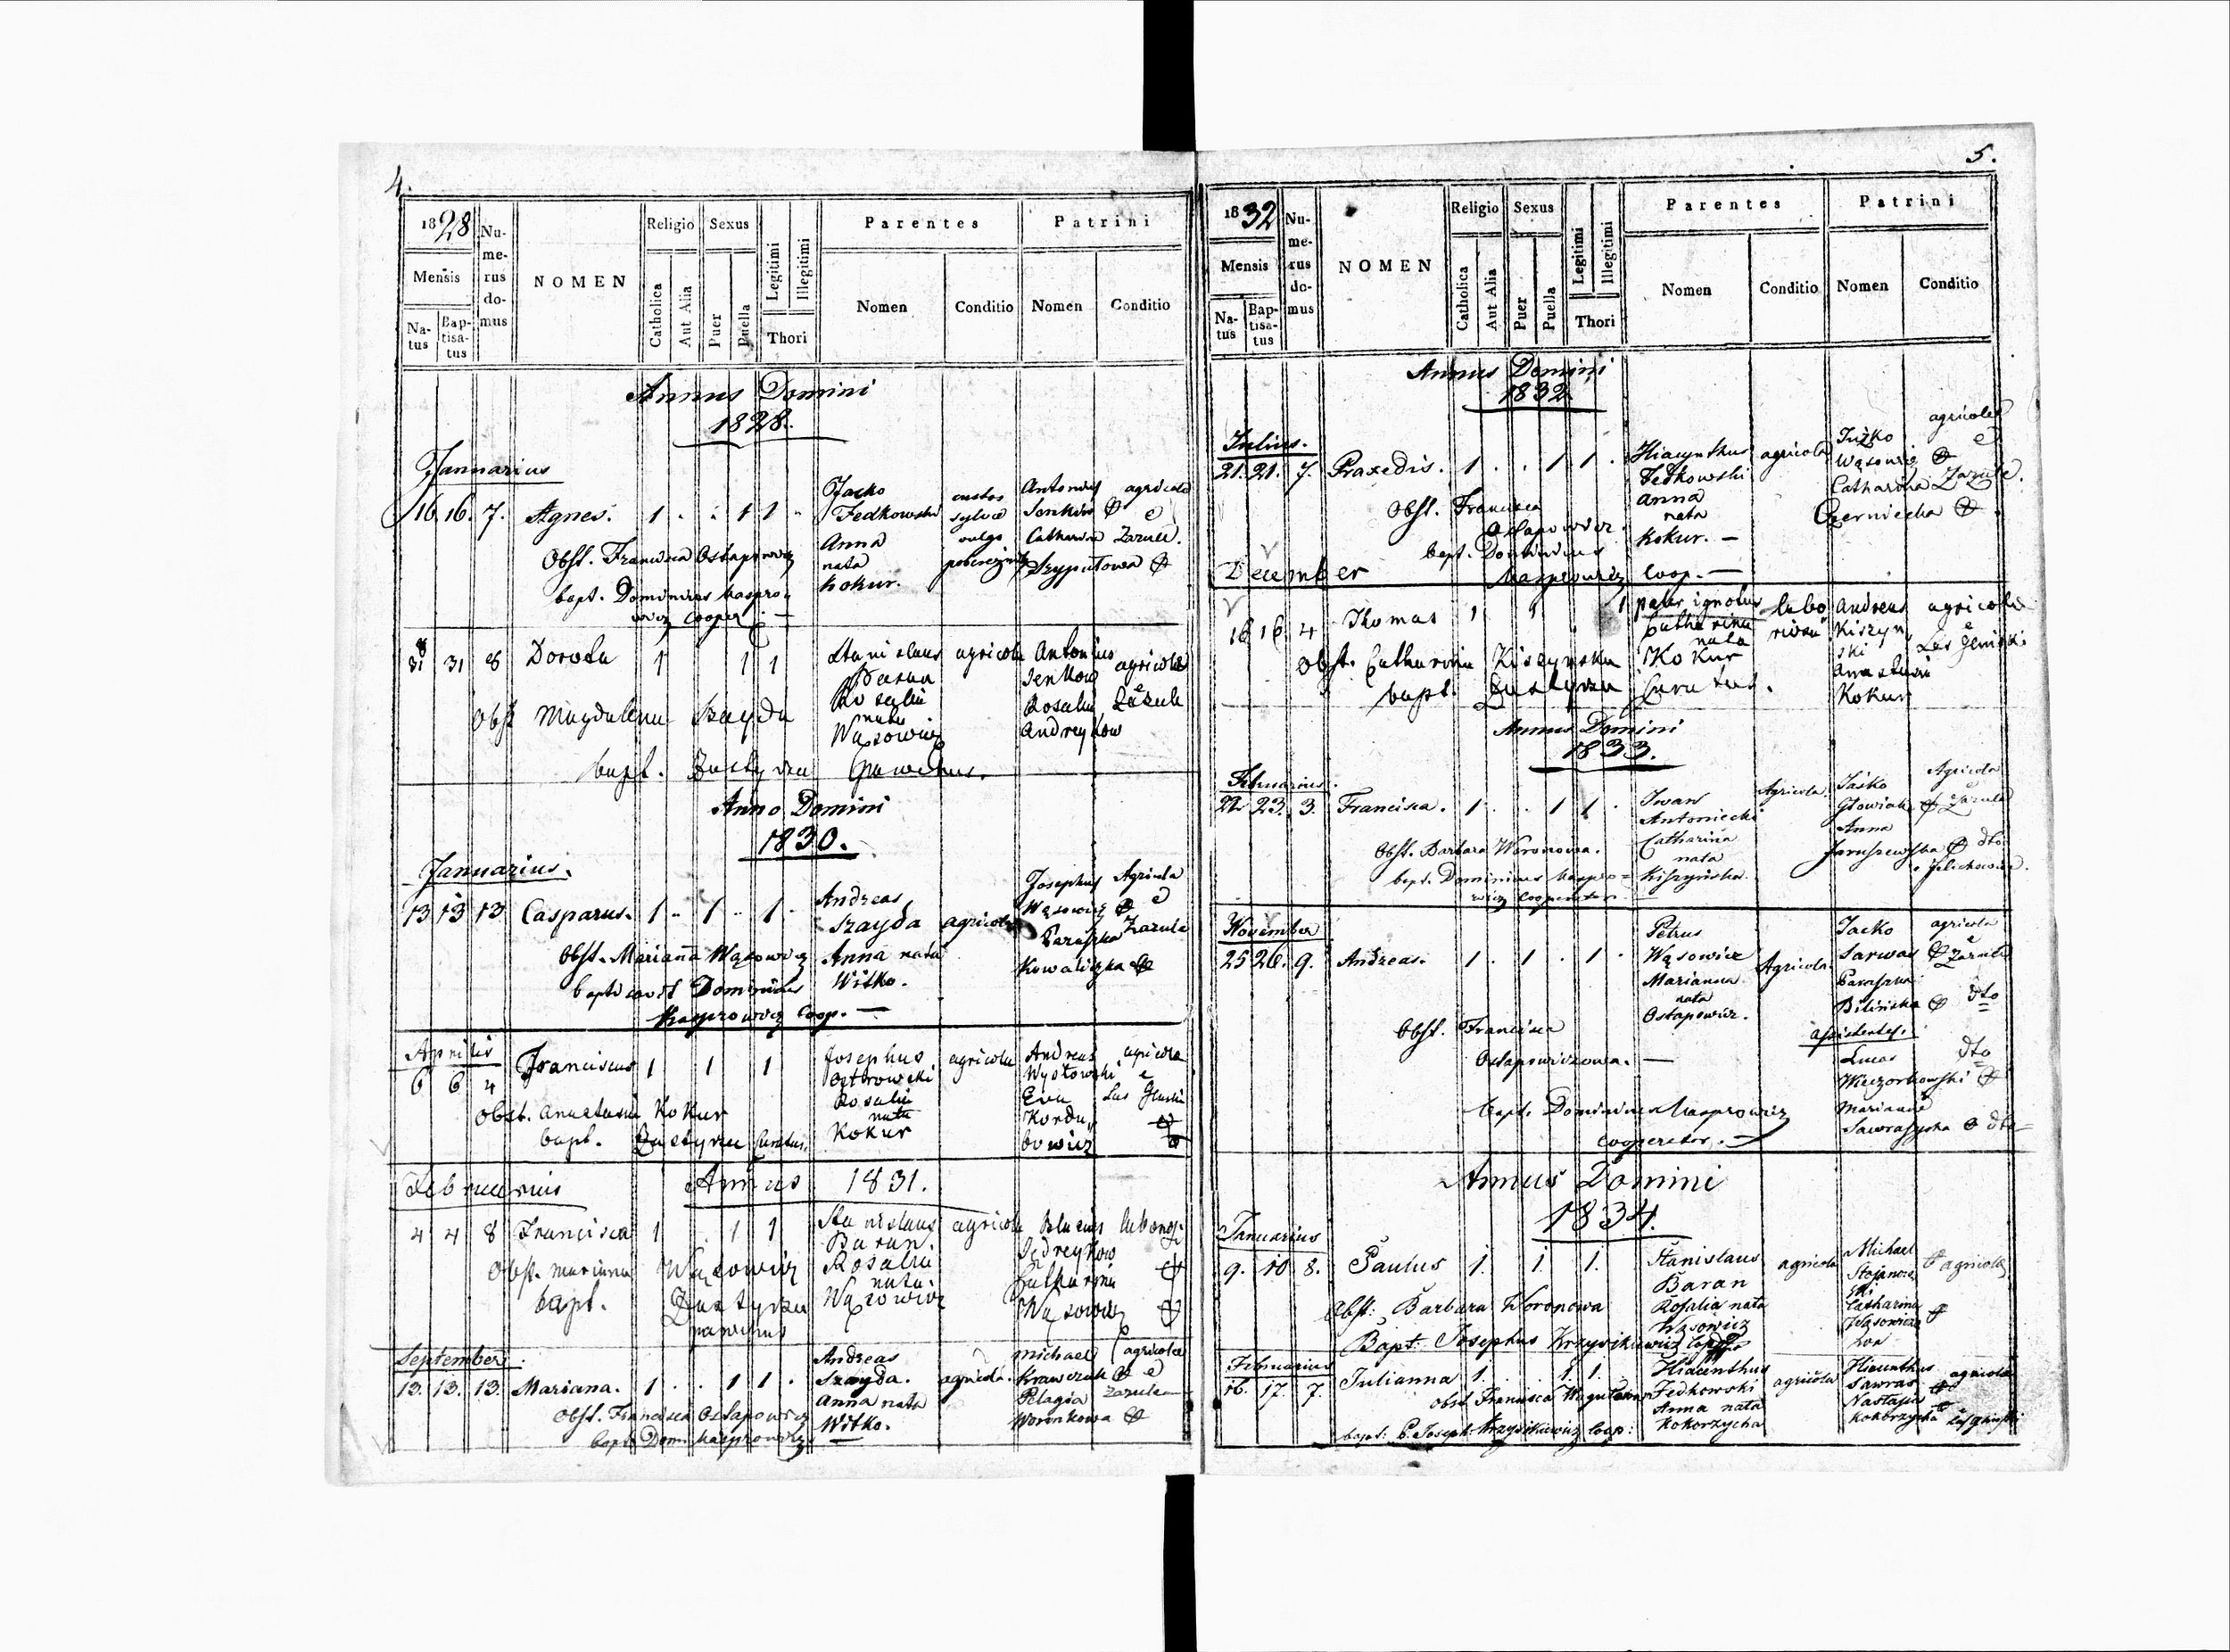 4.
1828
Nu-
me-
rus
do-
mus
Mensis
Na-
tus
Bap-
tisa-
tus
NOMEN
Religio
Catholica
Aut Alia
Sexus
Puer
Puella
Legitimi
Illegitimi
Thori
Parentes
Nomen
Conditio
Patrini
Nomen
Conditio
Annus Domini
1828.
Januarius
16. 16. 7. Agnes. 1 . . 1 1 .
Jacko
Fedkowski
Anna
nata
Kokur.
custos
sylvae
vulgo
Antonius
Senków
Catharina
Szypułowa
agricola
e
Zazule.
Obst. Francisca Ostapowicz
bapt. Dominicus Kaspro-
wicz Cooper. —
31 31 8 Dorota 1 1 1
Stanislaus
Rosalia
nata
Wąsowicz
agricola
Antonius
Senkow
Rosalia
Andreykow
agricola
e
Zazule
Obst Magdalena Szayda
bapt. Zustyrca
Anno Domini
1830.
Januarius.
13 13 13 Casparus. 1 .. 1 .. 1 .
Andreas
Szayda
Anna nata
Witko.
agricola
Josephus
Wąsowicz
Paraszka
Kowaliszka
Agricola
e
Zazule
Obst. Marianna Wąsowicz
baptisavit Dominicus
Kasprowicz Coop. —
Aprilis
6 6 4 Franciscus 1 1 1
Josephus
Ostrowski
Rosalia
nata
Kokur
agricola
Andreas
Wysłowski
Eva
Kordu-
bowicz
agricola
e
Obst. Anastasia Kokur
bapt. Zustyrca Curatus.
Februarius Annus 1831.
4 4 8 Francisca 1 . 1 1
Stanislaus
Baran.
Rosalia
nata
Wąsowicz
agricola
Catharina
Wąsowicz
Obst. Marianna Wąsowicz
bapt. Zustyrca
September.
13. 13. 13. Mariana. 1 . . 1 1 .
Andreas
Szayda.
Anna nata
Witko.
agricola.
Michael
Krawczuk
Pelagia
Woronkowa
agricola
e
Zazule
Obst. Francisca Ostapowicz
bapt. Dom. Kasprowicz
5.
1832
Nu-
me-
rus
do-
mus
Mensis
Na-
tus
Bap-
tisa-
tus
NOMEN
Religio
Catholica
Aut Alia
Sexus
Puer
Puella
Legitimi
Illegitimi
Thori
Parentes
Nomen
Conditio
Patrini
Nomen
Conditio
Annus Domini
1832.
Julius.
21. 21. 7. Praxedis. 1 . . 1 1 .
Hiacynthus
Fedkowski
Anna
nata
Kokur. —
agricola
Wąsowicz
Catharina
Czerniecka
agricolae
e
Zazule.
Obst. Francisca
Ostapowicz.
bapt. Dominicus
Kasprowicz Coop. —
December
16 16 4 Thomas 1 1 1
pater ignotus
Catharina
nata
Kokur
Andreas
Kiszyn-
ski
Anastasia
Kokur
agricola
e
Obst. Catharina Kiszynska
bapt. Zustyrca Curatus.
Annus Domini
1833.
Februarius.
22 23. 3. Francisca. 1 . . 1 1 .
Iwan
Antoniecki
Catharina
nata
Kiszyńska.
Agricola.
Jaśko
Głowiak
Anna
Jaruszewska
Agricola
e Zazule
dto
Obst. Barbara Woronowa.
bapt. Dominicus Kaspro=
wicz Cooperator —
November
25 26. 9. Andreas. 1 . 1 . 1 .
Petrus
Wąsowicz
Marianna
nata
Ostapowicz.
Agricola.
Jacko
Sarwas
Paraszka
Bilińska
agricola
e Zazule
dto
assistentes.
Lucas
Wieczorkowski
dto
Marianna
Sawraszka
dto
Obst. Francisca
Ostapowiczowa. —
bapt. Dominicus Kasprowicz
Cooperator. —
Annus Domini
1834.
Januarius
9. 10 8. Paulus 1. 1. 1.
Stanislaus
Baran
Rosalia nata
Wąsowicz
agricola
Michael
Stojanow-
ski
Catharina
Wąsowiczo-
wa
agricolae
Obst: Barbara Woronowa
Bapt: Josephus Krzysikiewicz
Februarius
16. 17. 7. Julianna 1. . . 1 1.
Hiacenthus
Fedkowski
Anna nata
Kokorzycha
agricola
Hiacenthus
Sawras
Nastasia
Kokorzycha
agricola
bapt: P. Joseph. Krzysikiewicz Coop: